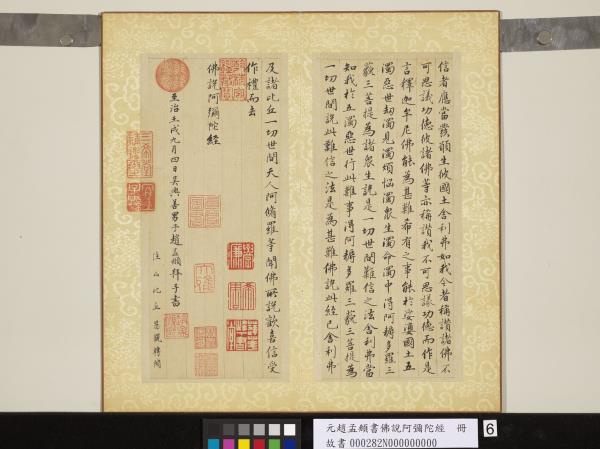 信者應當發願生彼國土舍利弗如我今者稱讚諸佛不
可思議功德彼諸佛等亦稱讚我不可思議功德而作是
言釋迦牟尼佛能為甚難希有之事能於娑婆國土五
濁惡世劫濁見濁煩惱濁衆生濁命濁中得阿耨多羅三
藐三菩提為諸衆生說是一切世間難信之法舍利弗當
知我於五濁惡世行此難事得阿耨多羅三藐三菩提為
一切世間說此難信之法是為甚難佛說此經已舍利弗
及諸比丘一切世間天人阿脩羅等聞佛所說歡喜信受
作禮而去
佛說阿彌陀經
至治壬戌九月四日吳興善男子趙孟頫拜手書
元趙孟頫書佛說阿彌陀經 冊
故書 000282N000000000
6